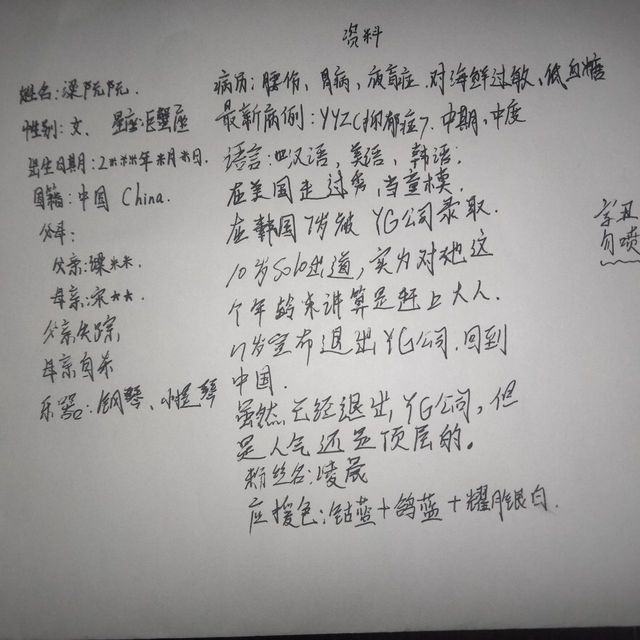 资料
姓名:梁阮阮.
性别:女、星座:巨蟹座
出生日期:2***年*月*日.
国籍:中国 China.
父母:
父亲:梁**.
母亲:宋**
父亲失踪
母亲自杀
乐器:钢琴、小提琴
病历:腰伤、胃病、夜盲症.对海鲜过敏、低血糖
最新病例:YYZ(抑郁症7.中期、中度
语言:汉语,美语,韩语.
在美国走过秀,当童模.
在韩国7岁被YG公司录取.
10岁Solo出道,实为对她这
个年龄来讲算是赶上大人.
17岁宣布退出YG公司.回到
中国.
虽然已经退出YG公司,但
是人气还是顶层的。
粉丝名:凌晟
应援色:钴蓝+鸽蓝+耀月银白.
字丑
勿喷